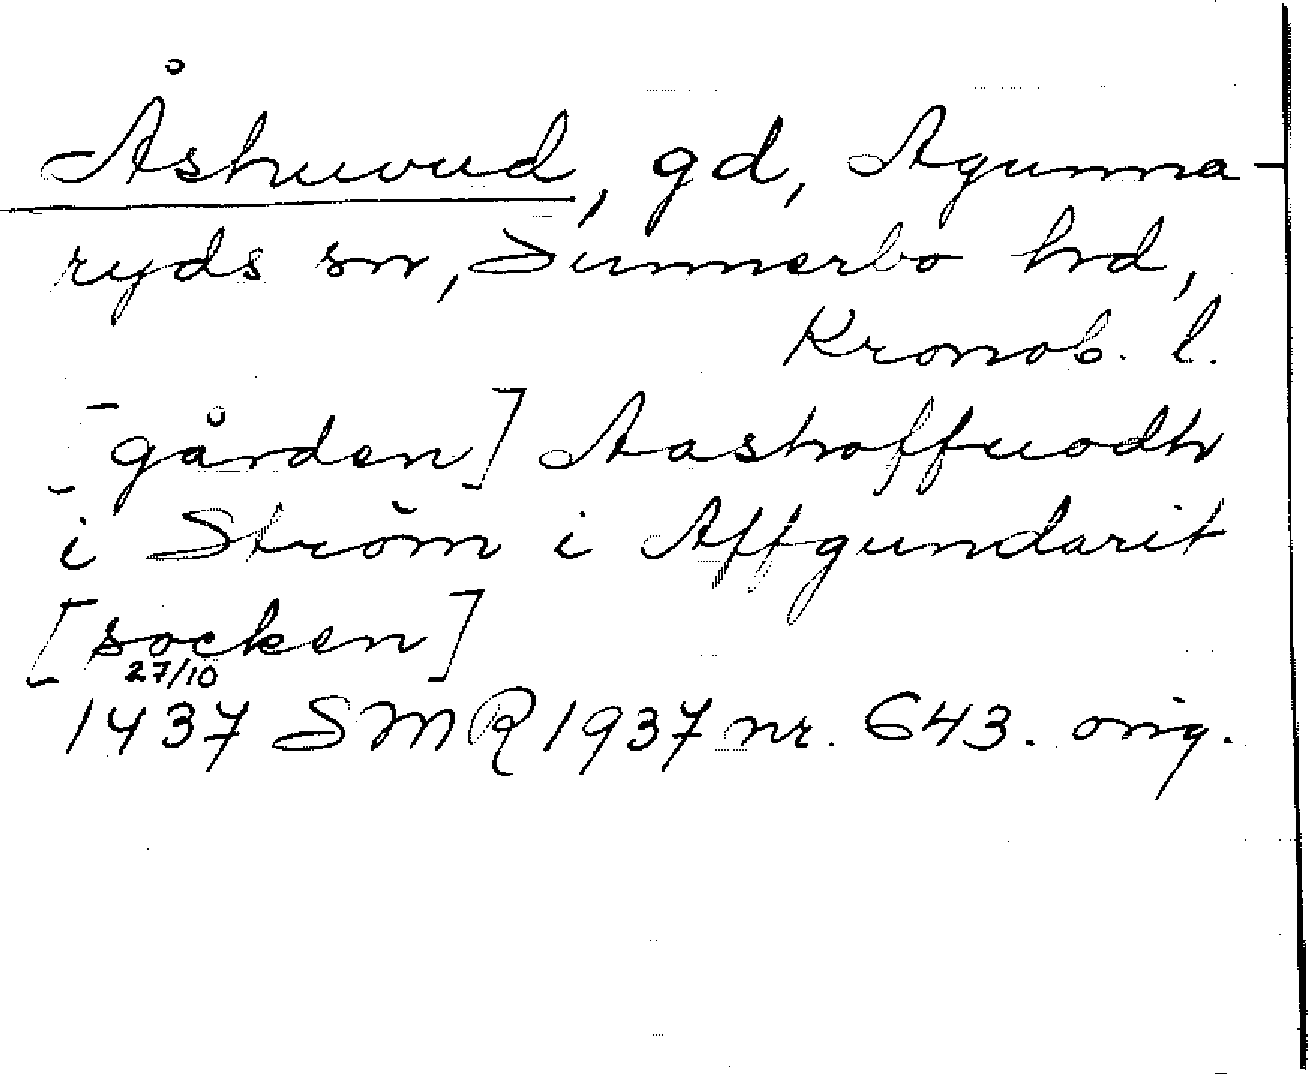 Åshuvud, gd, Agunna-
ryds sn, Sunnerbo hrd,
Kronob. l.
[gården] Aashoffuodh
i Ström i Affgundarit
[socken]
27/10
1437 SMR 1937 nr. 643. orig.